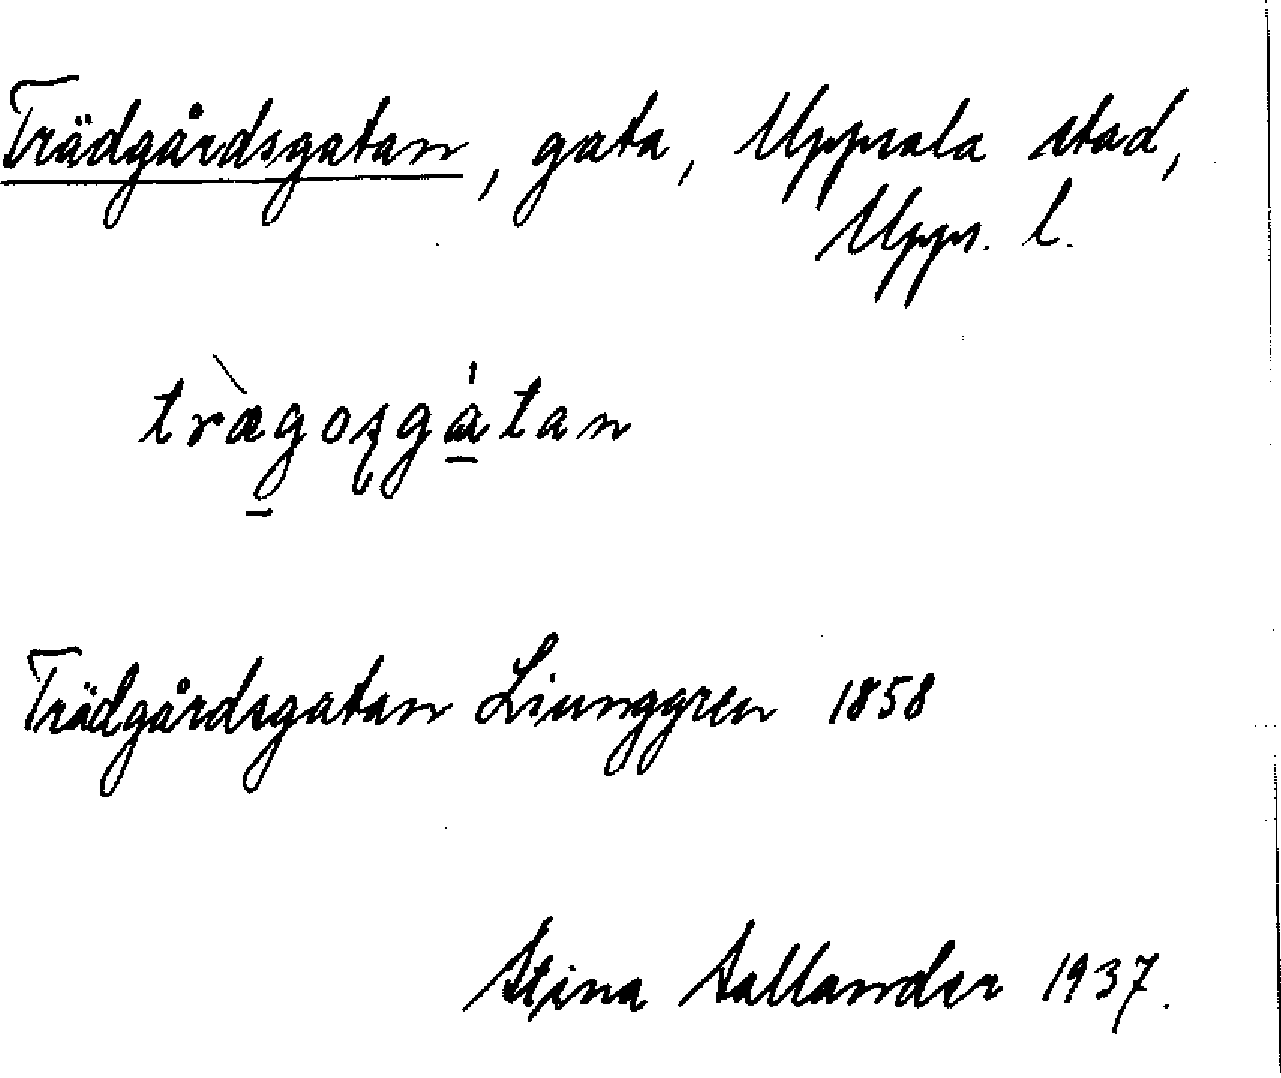 Trädgårdsgatan, gata, Uppsala stad,
Upps. l.
Trädgårdsgatan Liunggren 1858
Stina Sallander 1937.